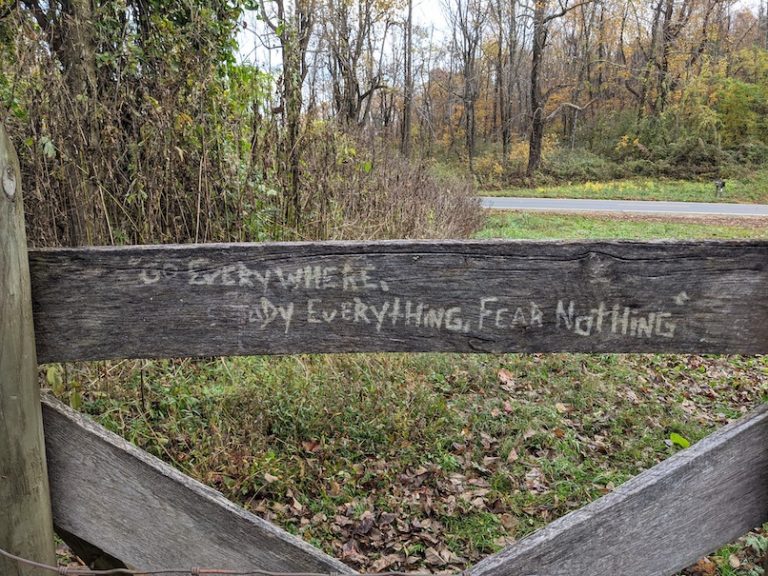 "Go Everywhere,
Study Everything, Fear Nothing"